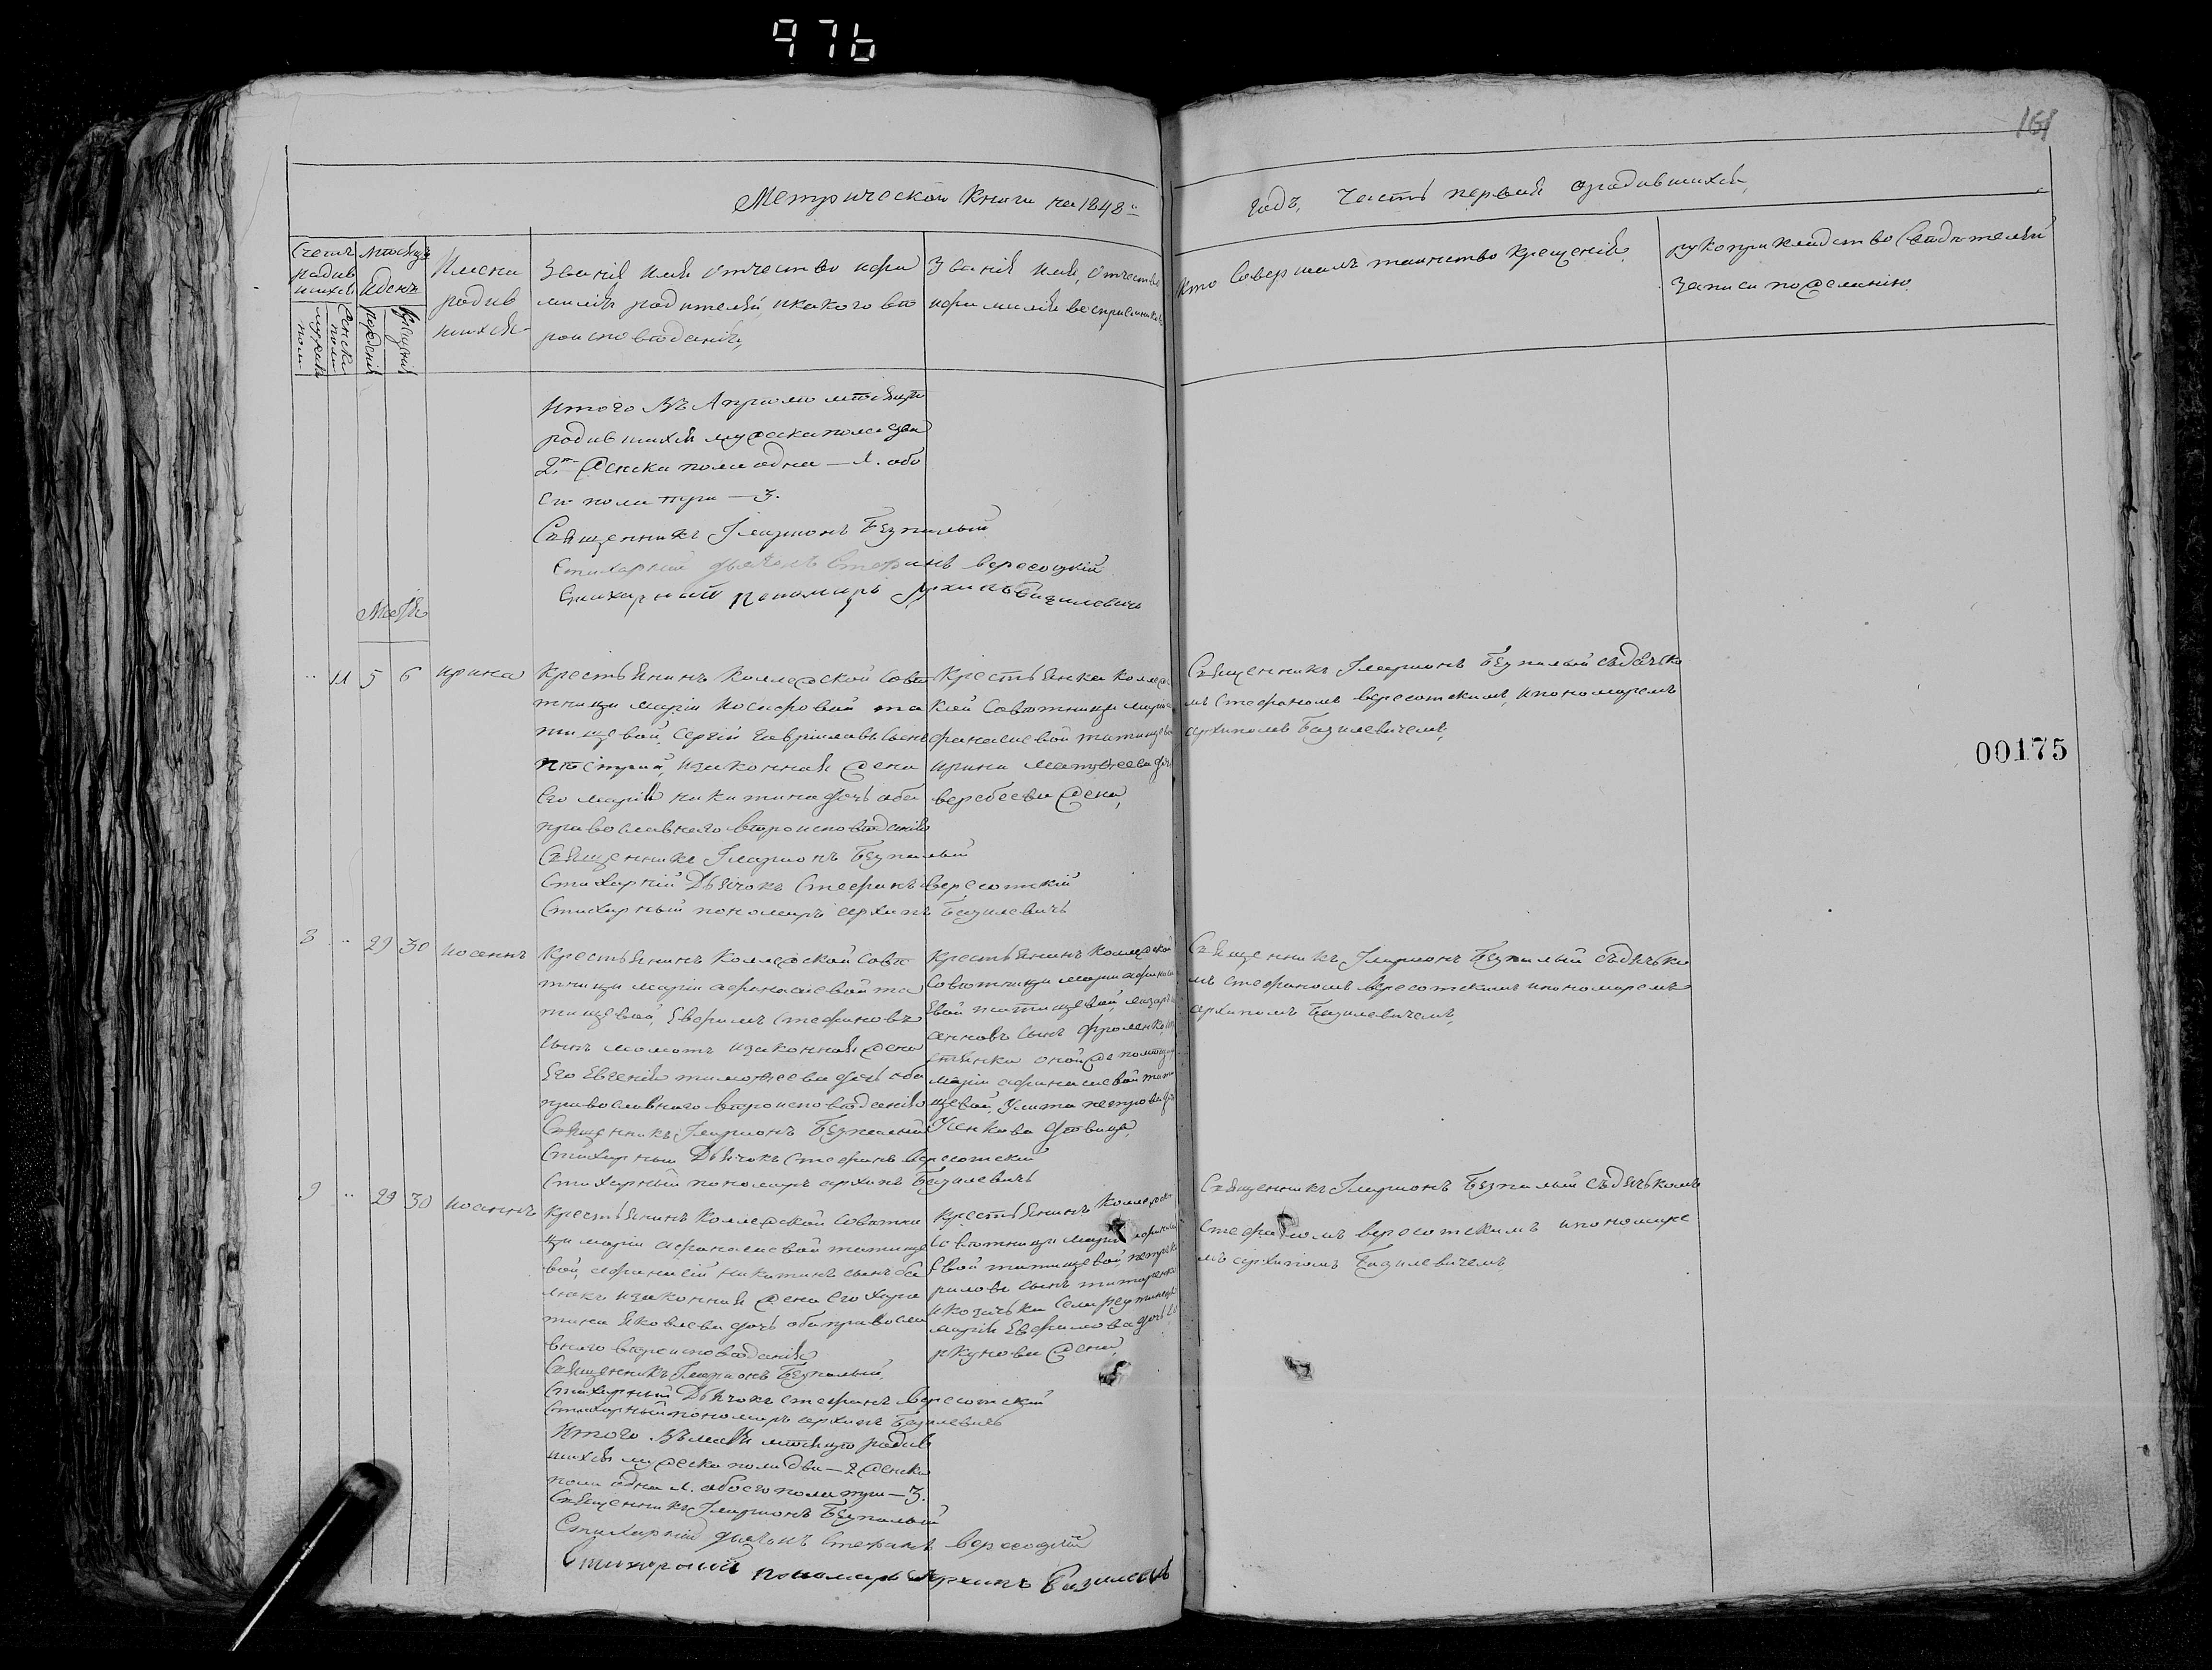 976
161
Метрической книги на 1848й
годъ, Часть первая ородившихся,
Счетъ родив шихся
мужска пола
женска пола
Мѣсяцъ и день
рожденія
крещенія
Имена
родив
шихся
Званіе имя отчество ифа
милія родителей, икакого вѣ
роисповѣданія,
Званіе имя, отчество
ифамилія воспріемников
Кто совершалъ таинство крещенія
рукоприкладство свидѣтелей
записи пожеланію
Итого въ Апрѣлѣ мѣсяцѣ
родившихся мужска пола два
2. женска пола одна — 1. обо
его пола три — 3.
Священникъ Іларионъ Безпалый
Стихарний дьячокъ Стефанъ Вересоцкій
Стихарний пономарь Архипъ Базилевичъ
Май
11 5 6 ирина
Крестьянинъ Коллежской Совѣ
тници маріи Иосифовой та
тищевой, Сергій Гавріиловъ сынъ
Пѣстрый, изаконная жена
Его марія никитина дочь оба
православнаго вѣроисповѣданія
Священникъ Іларионъ Безпалый
Стихарній Дьячокъ Стефанъ Вересотскій
Стихарный пономарь архипъ Базилевичъ
Крестьянка Коллеж
кой Совѣтници маріи
афанасиевой татищево
ирина матвѣева доч
веребеева жена,
Священникъ Іларионъ Безпалый съдячько
мъ Стефаномъ вересотскимъ, ипономаремъ
архипомъ Базилевичемъ,
00175
8 29 30 иоаннъ
Крестьянинъ Коллежской Совѣ
тници маріи афанасиевой та
тищевой, Евфимъ Стефановъ
сынъ момотъ изаконная жена
Его Евгенія тимофеева дочь оба
православнаго вѣроисповѣданія
Священникъ Іларионъ Безпалый
Стихарный Дьячокъ Стефанъ Вересотский
Стихарный пономарь архипъ Базилевичъ
Крестьянинъ Коллежской
Совѣтници маріи афанаси
Евой татищевой, лазарь
сынъ
оной же помѣщ
маріи афанасиевой тати
щевой, Улита петрова доч
Усенкова дѣвица,
Священникъ Іларионъ Безпалый съдячько
мъ стефаномъ вересотскимъ ипономаремъ
архипомъ Базилевичемъ,
9 29 30 иоаннъ
Крестьянинъ Коллежской Совѣтни
ци маріи афанасиевой татище
вой, афанасій никитинъ сынъ
изаконная жена его хари
тина Яковлева дочь оба правосла
внаго вѣроисповѣданія
Священникъ Іларионъ Безпалый,
Стихарный Дьячокъ стефанъ вересотский
Стихарный пономарь архипъ Базилевичъ
Крестьянинъ Коллежско
Совѣтници маріи афанаси
Евой татищевой петръ
сынъ титаренко
икозачька села
марія Евфимова дочь
жена,
Священникъ Іларионъ Безпалый съдячькомъ
стефаномъ вересотскимъ ипономаре
мъ архипомъ Базилевичемъ
Итого въ маѣ мѣсяцѣ родив
шихся мужска пола два — 2 женска
пола одна 1. обоего пола три — 3.
Священникъ Іларионъ Безпалый
Стихарній дьячокъ Стефанъ Вересоцкій
Стихарний пономарь Архипъ Базилевичъ